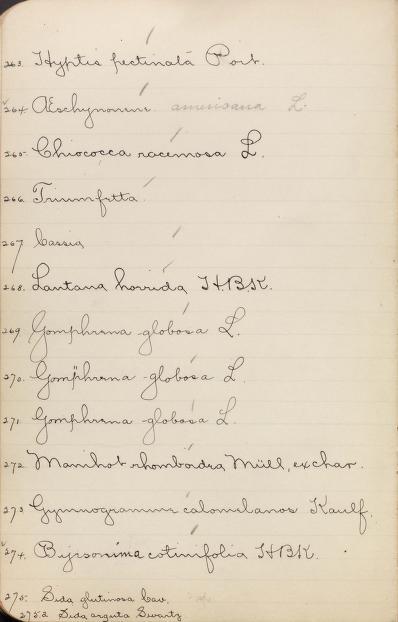 263. Hyptis pectinata Poit.
264. Æschynomene americana L.
265. Chiococca racemosa L.
266. Triumfetta
267. Cassia
268. Lantana horrida HBK.
269. Gomphrena globosa L.
270. Gomphrena globosa L.
271. Gomphrena globosa L.
272. Manihot rhomboidea Müll. ex char.
273. Gymnogramme calomelanos Kaulf.
274. Byrsonima cotinifolia HBK.
275. Sida glutinosa Cav.
275.a Sida arguta Swartz